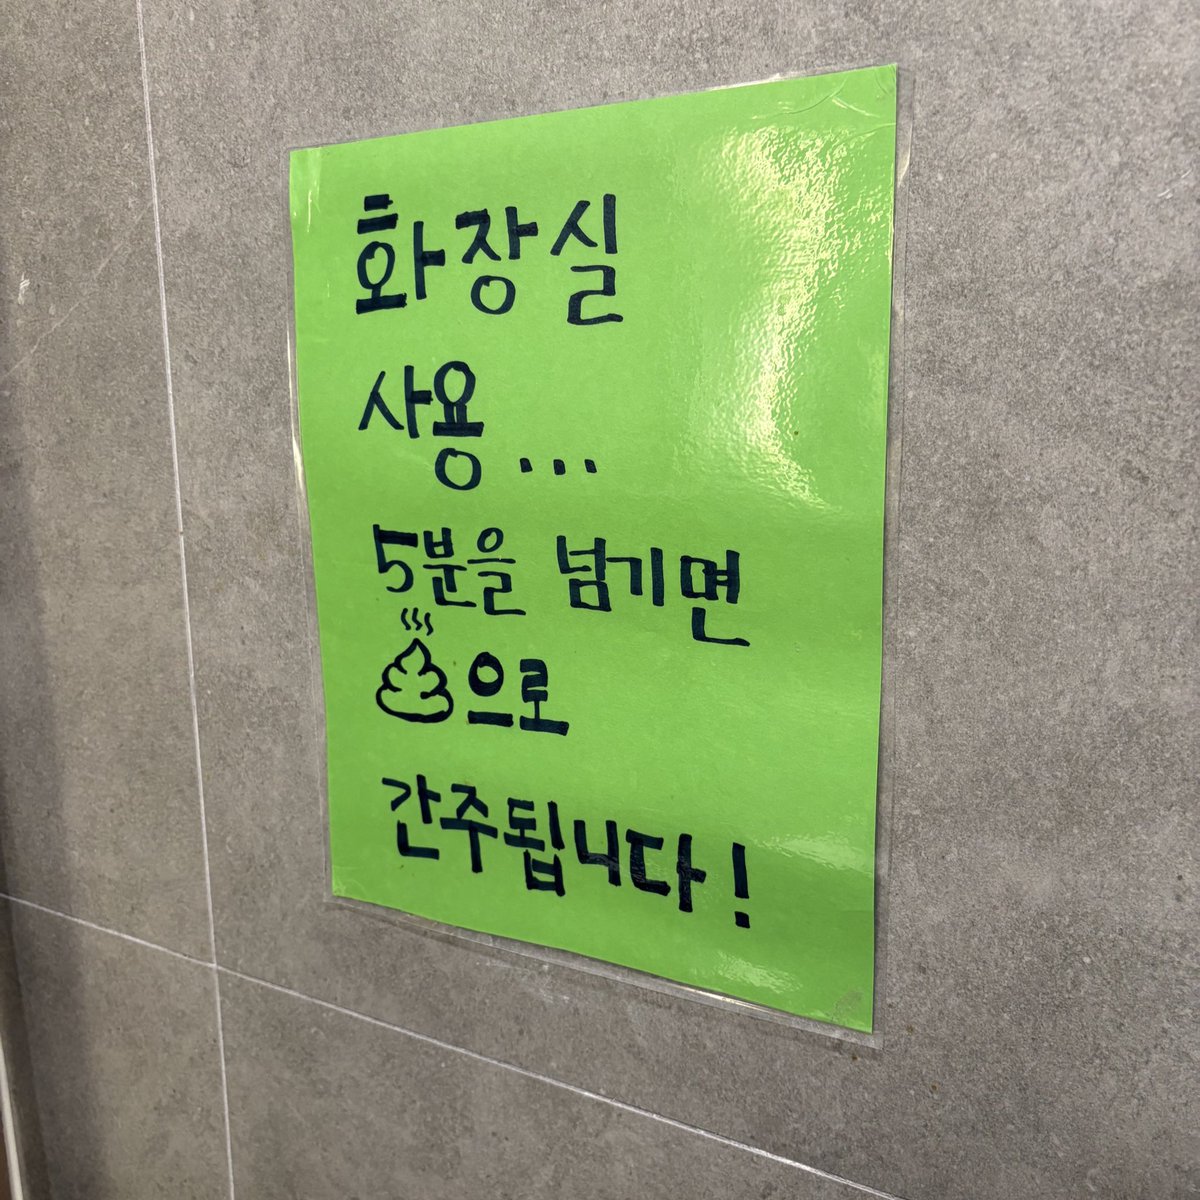 화장실
사용...
5분을 넘기면
💩으로
간주됩니다!